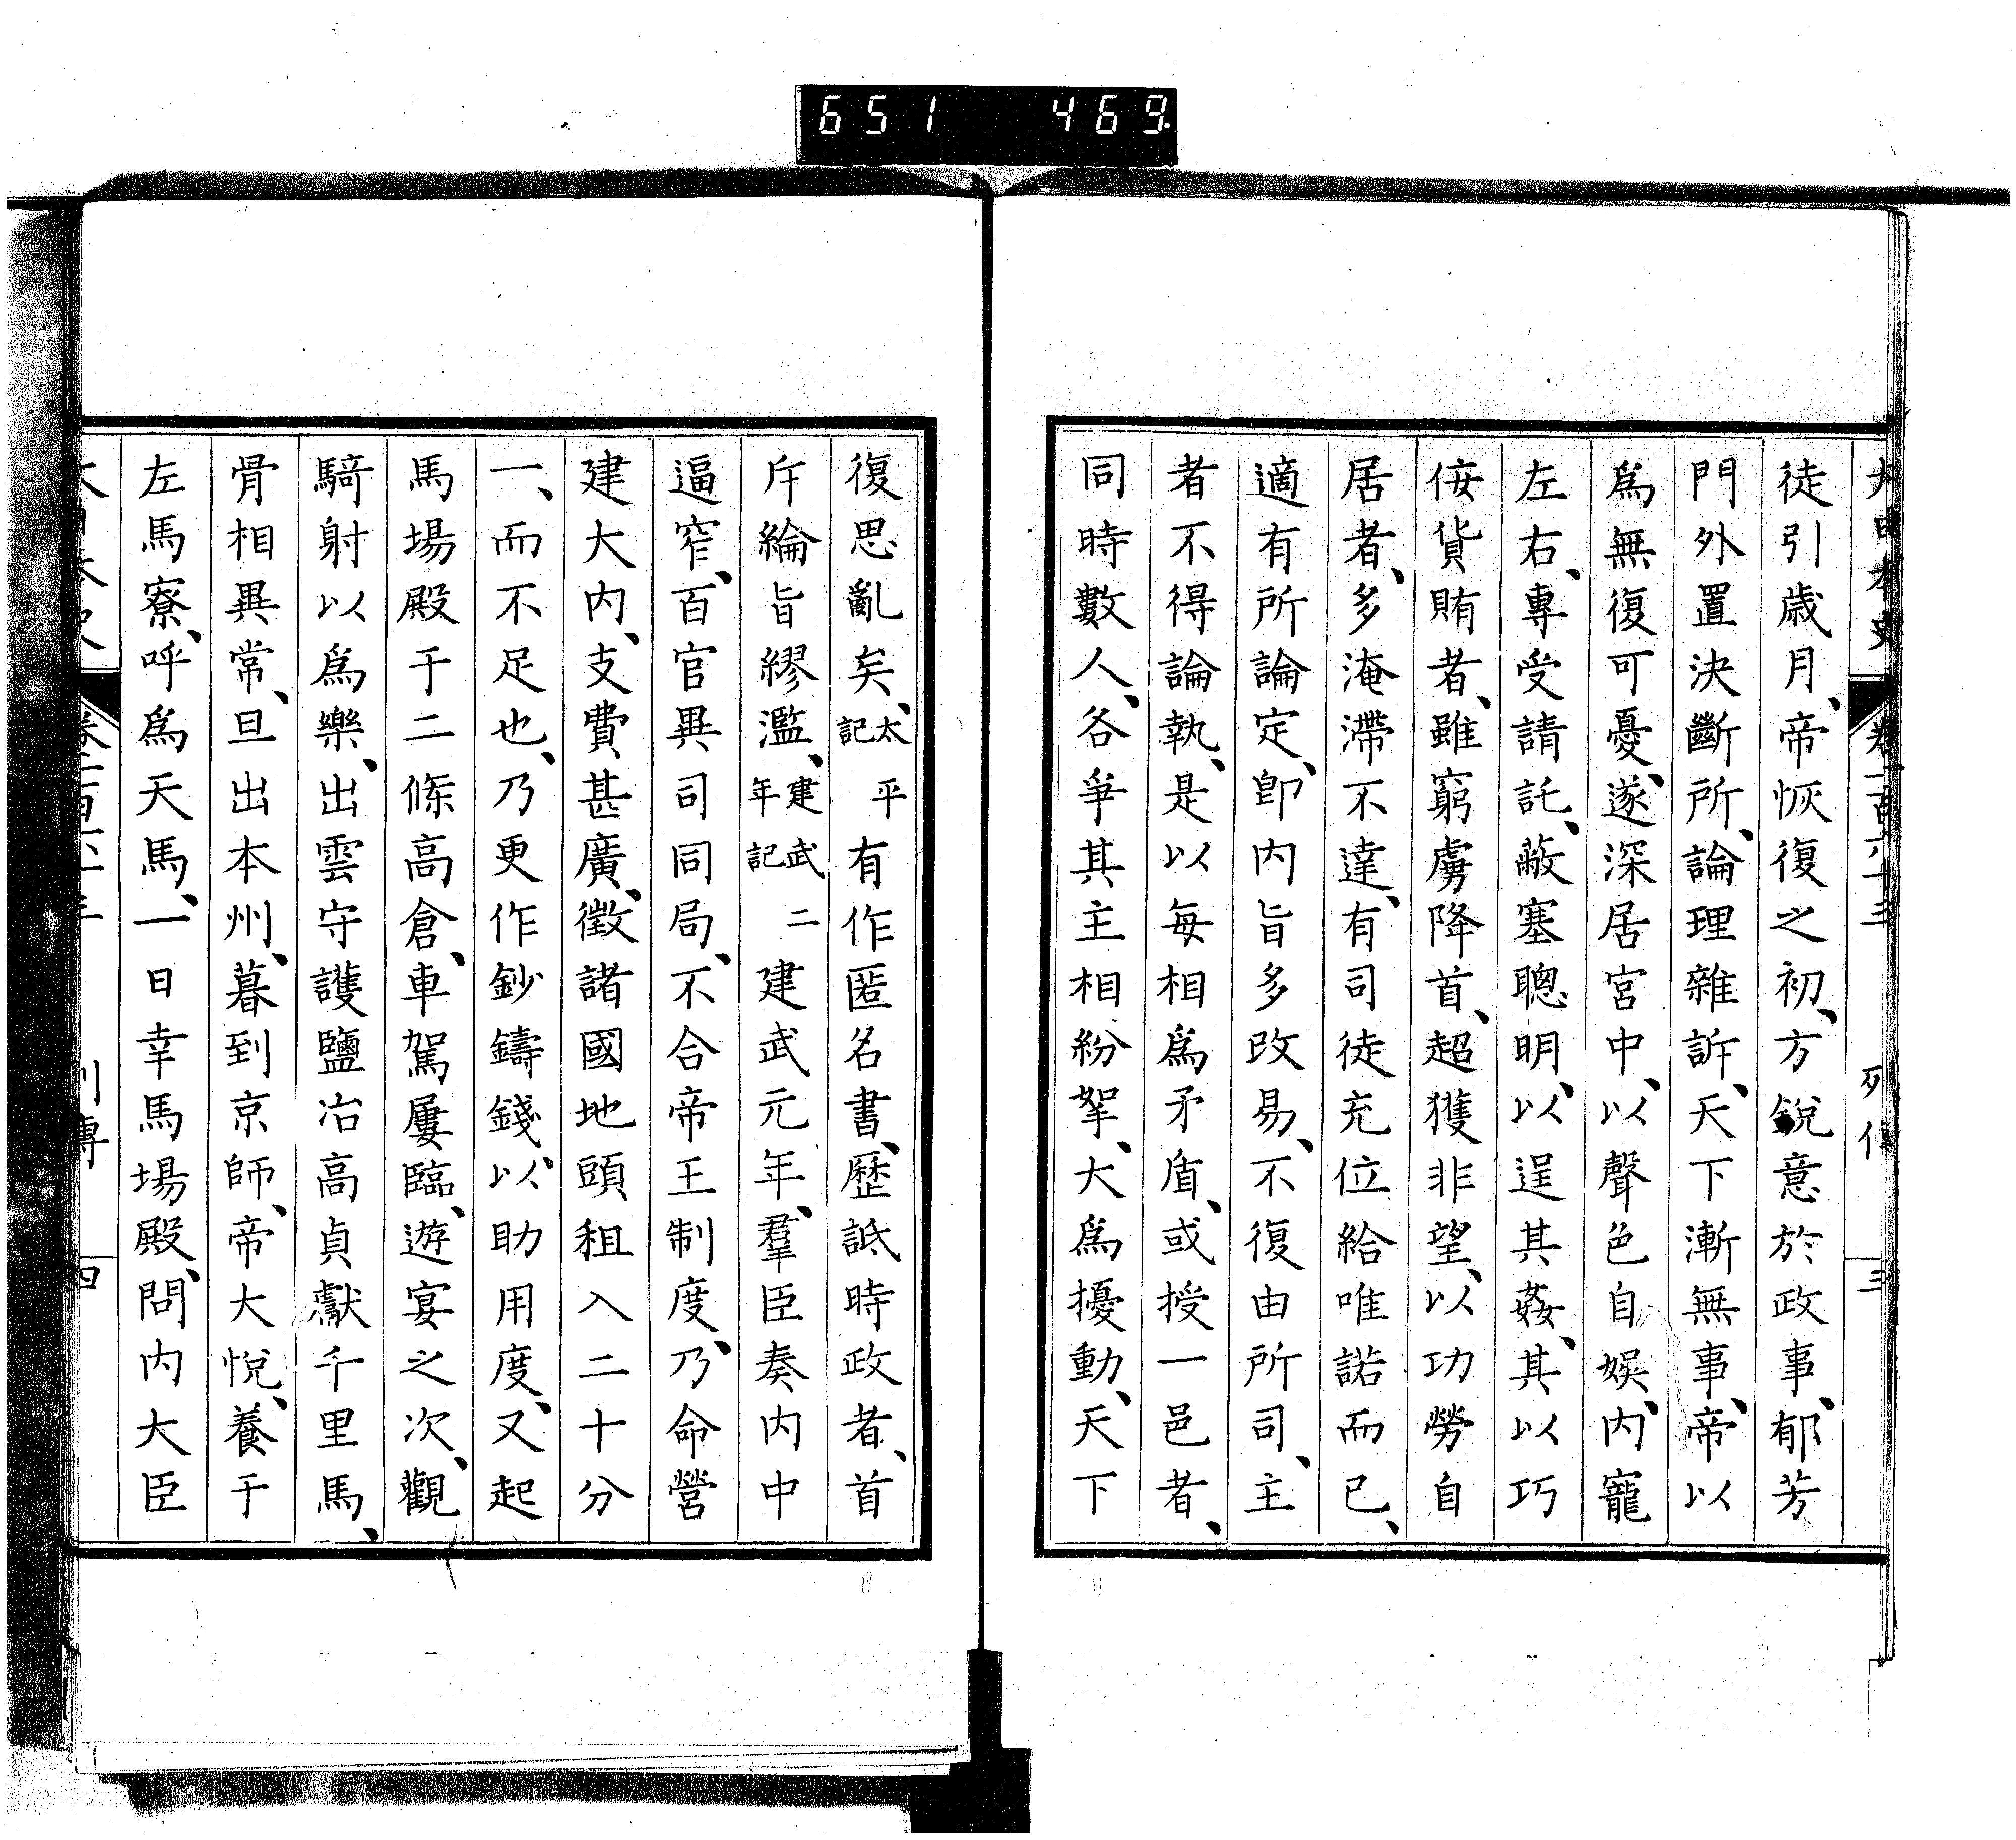 651 469.
大日本史 卷一百六十三 列傳 三
徒引歲月、帝恢復之初、方銳意於政事、郁芳
門外置決斷所、論理雜訴、天下漸無事、帝以
爲無復可憂、遂深居宮中、以聲色自娛、内寵
左右、專受請託、蔽塞聰明、以逞其姦、其以巧
侫貨賄者、雖窮虜降首、超獲非望、以功勞自
居者、多淹滯不達、有司徒充位給唯諾而已、
適有所論定、卽内旨多改易、不復由所司、主
者不得論執、是以每相爲矛盾、或授一邑者、
同時數人、各爭其主相紛拏、大爲擾動、天下
復思亂矣、太平記有作匿名書、歷詆時政者、首
斥綸旨繆濫、建武二年記建武元年、羣臣奏内中
逼窄、百官異司同局、不合帝王制度、乃命營
建大内、支費甚廣、徵諸國地頭租入二十分
一、而不足也、乃更作鈔鑄錢、以助用度、又起
馬場殿于二條高倉、車駕屢臨、遊宴之次、觀
騎射以爲樂、出雲守護鹽冶高貞獻千里馬、
骨相異常、旦出本州、暮到京師、帝大悅、養于
左馬寮、呼爲天馬、一日幸馬場殿、問内大臣
四